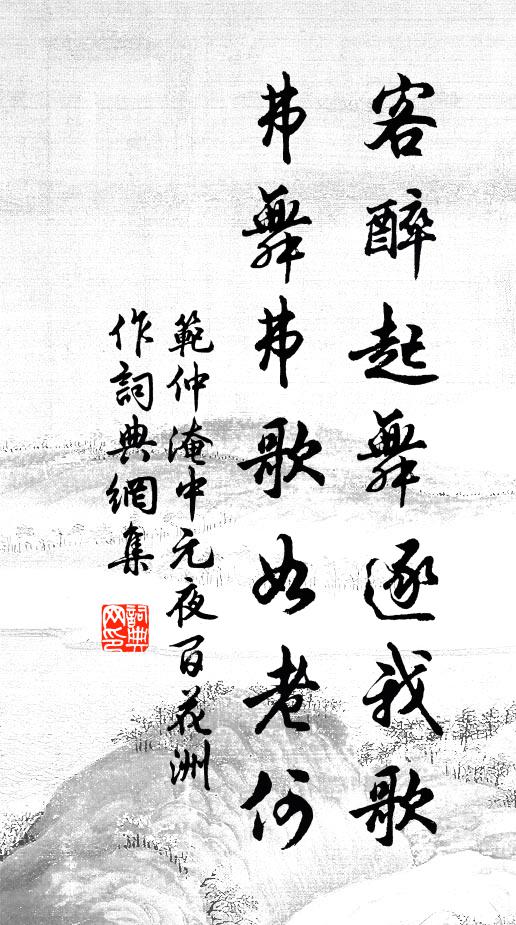 客醉起舞逐我歌
弗舞弗歌如老何
範仲淹中元夜百花洲
作詞典網集
詞典網印